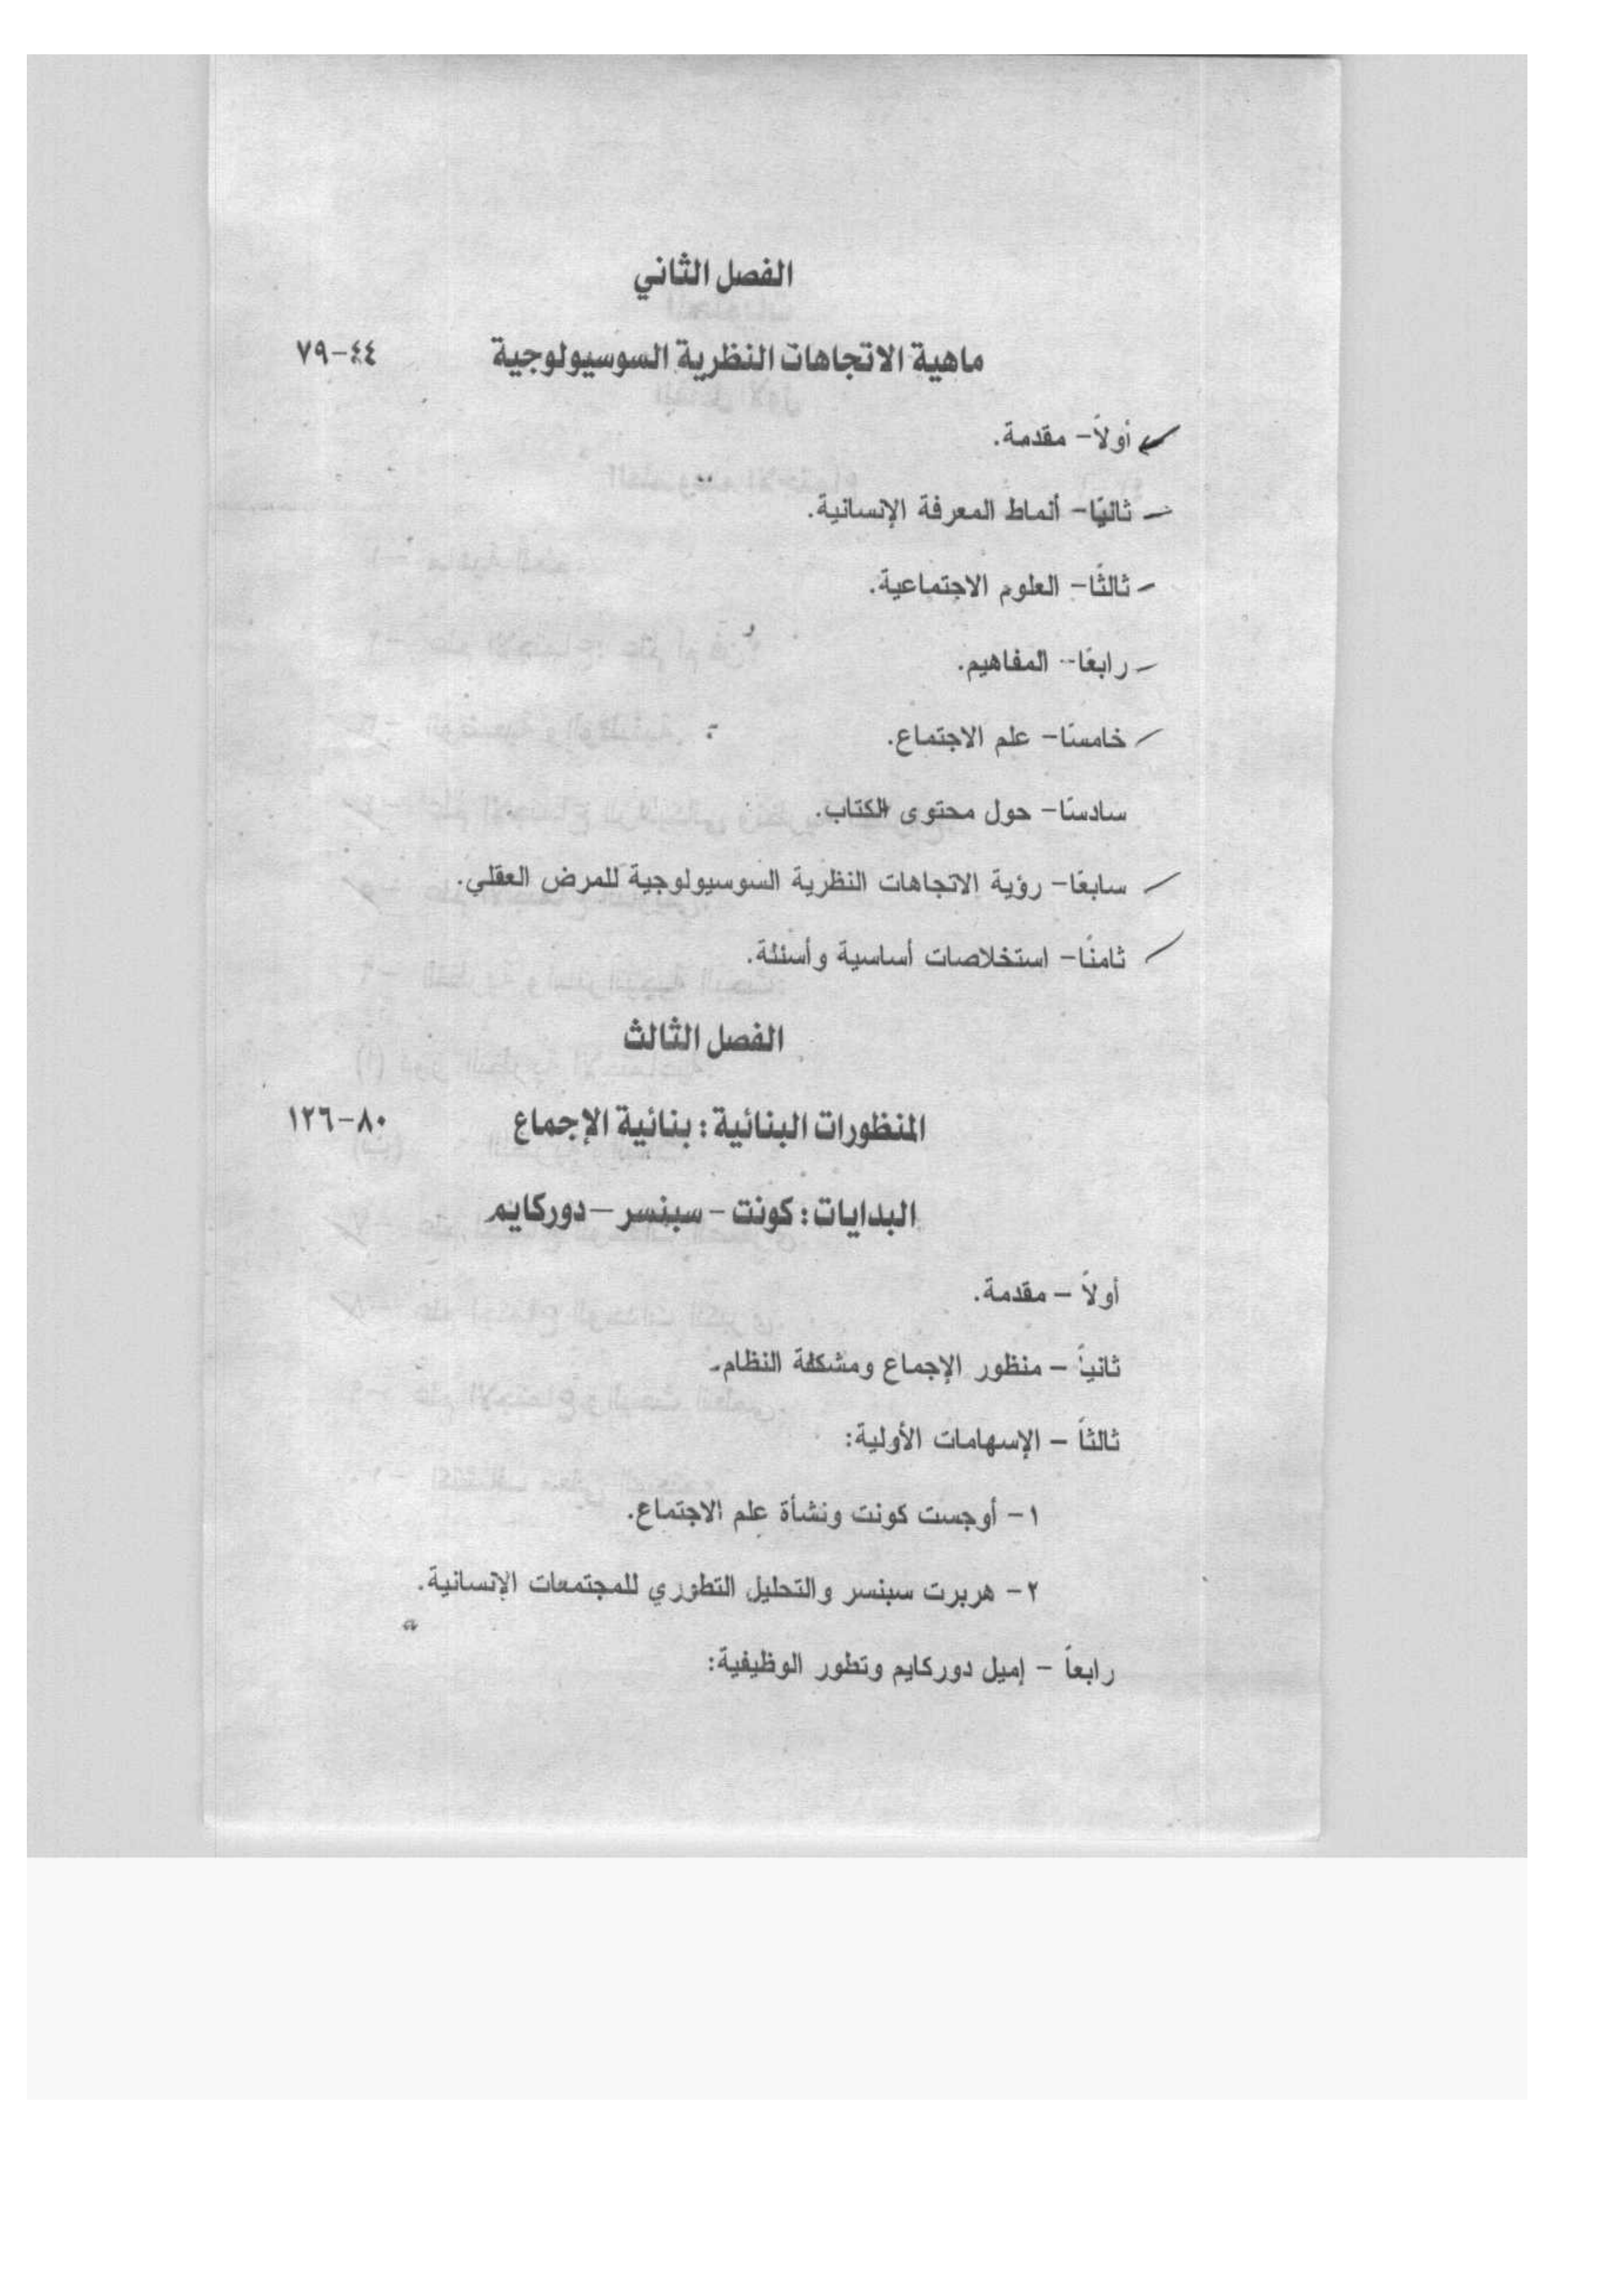 الفصل الثاني
ماهية الاتجاهات النظرية السوسيولوجية ٤٤-٧٩
أولاً- مقدمة.
ثانيًا- أنماط المعرفة الإنسانية.
ثالثًا- العلوم الاجتماعية.
رابعًا- المفاهيم.
خامسًا- علم الاجتماع.
سادسًا- حول محتوى الكتاب.
سابعًا- رؤية الاتجاهات النظرية السوسيولوجية للمرض العقلي.
ثامنًا- استخلاصات أساسية وأسئلة.
الفصل الثالث
المنظورات البنائية : بنائية الإجماع ٨٠-١٢٦
البدايات : كونت - سبنسر - دوركايم
أولاً - مقدمة.
ثانياً - منظور الإجماع ومشكلة النظام.
ثالثاً - الإسهامات الأولية:
١- أوجست كونت ونشأة علم الاجتماع.
٢- هربرت سبنسر والتحليل التطوري للمجتمعات الإنسانية.
رابعاً - إميل دوركايم وتطور الوظيفية: